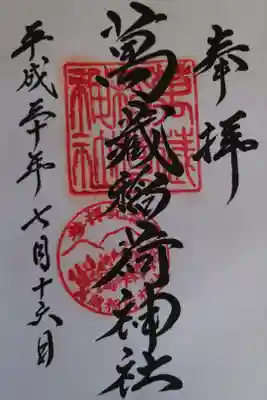 奉拝
萬蔵稲荷神社
平成三十年七月十六日